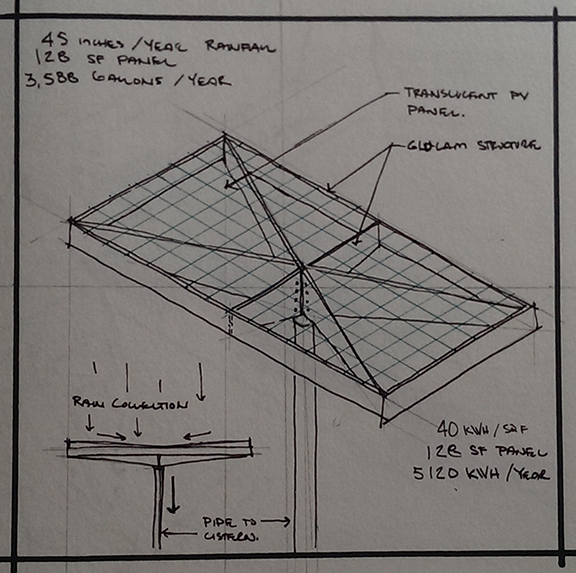 45 INCHES/YEAR RAINFALL
128 SF PANEL
3,588 GALLONS/YEAR
TRANSLUCENT PV
PANEL.
GLULAM STRUCTURE
RAIN COLLECTION
40 KWH/SQF
128 SF PANEL
5120 KWH/YEAR
PIPE TO
CISTERN.